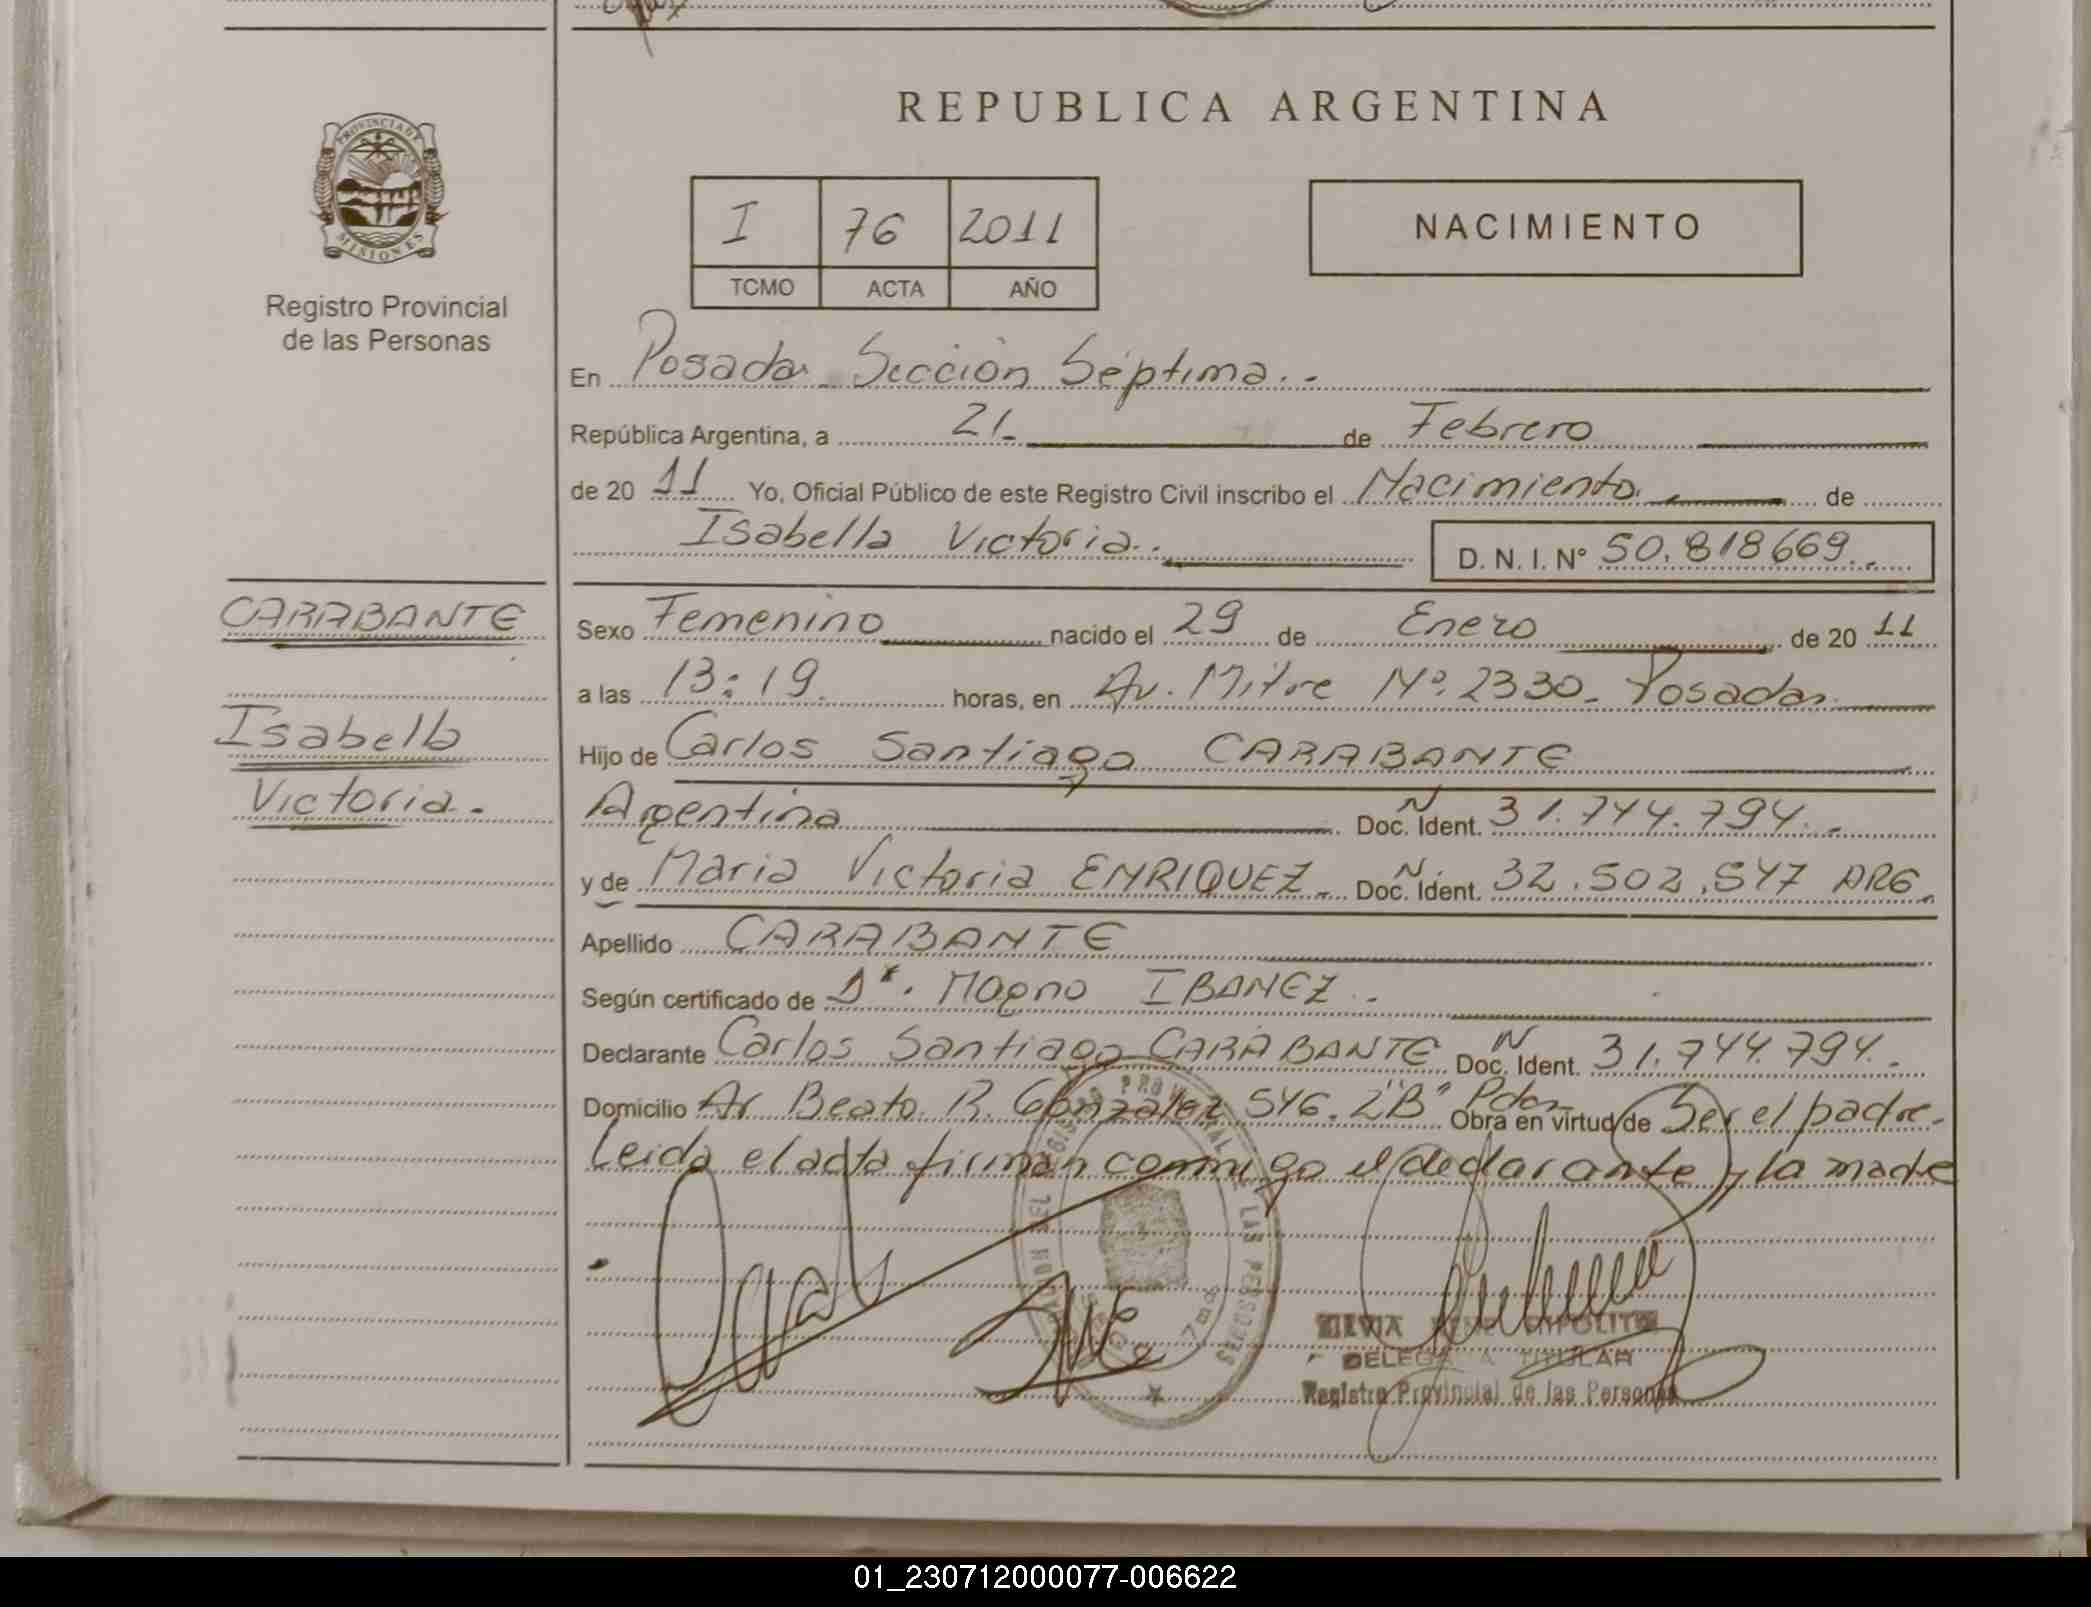 REPUBLICA ARGENTINA
PROVINCIA DE
MISIONES
Registro Provincial
de las Personas
I 76 2011
TOMO ACTA AÑO
NACIMIENTO
En Posadas Sección Séptima.-
República Argentina, a 21 de Febrero
de 20 11 Yo, Oficial Público de este Registro Civil inscribo el Nacimiento de
Isabella Victoria.
D. N. I. N° 50.818669
CARABANTE
Isabella
Victoria.
Sexo Femenino nacido el 29 de Enero de 20 11
a las 13:19 horas, en Av. Mitre N°. 2330_ Posadas
Hijo de Carlos Santiago CARABANTE
Argentina Doc. Ident. N 31.744.794.
y de Maria Victoria ENRIQUEZ Doc. Ident. N 32.502.547 ARG.
Apellido CARABANTE
Según certificado de Dr. Magno IBANEZ.
Declarante Carlos Santiago CARABANTE Doc. Ident. N 31.744.794.
Domicilio Av Beato R. Gonzalez 546. 2"B" Pdas Obra en virtud de Ser el padre.
Leida el acta firman conmigo el declarante y la madre
DELEGADA TITULAR
Registro Provincial de las Personas
01_230712000077-006622